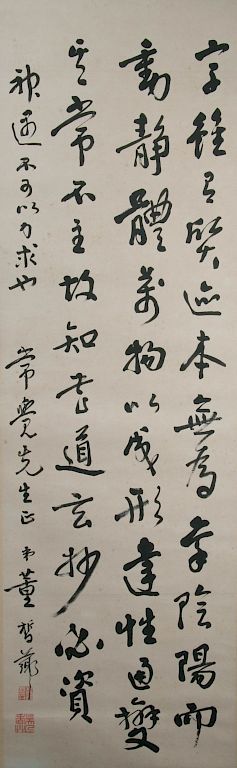 字雖有質迹本無為稟陰陽而
動靜體萬物以成形達性通變
其常不主故知書道玄妙必資
神遇不可以力求也 常覺先生正 弟董皙薌